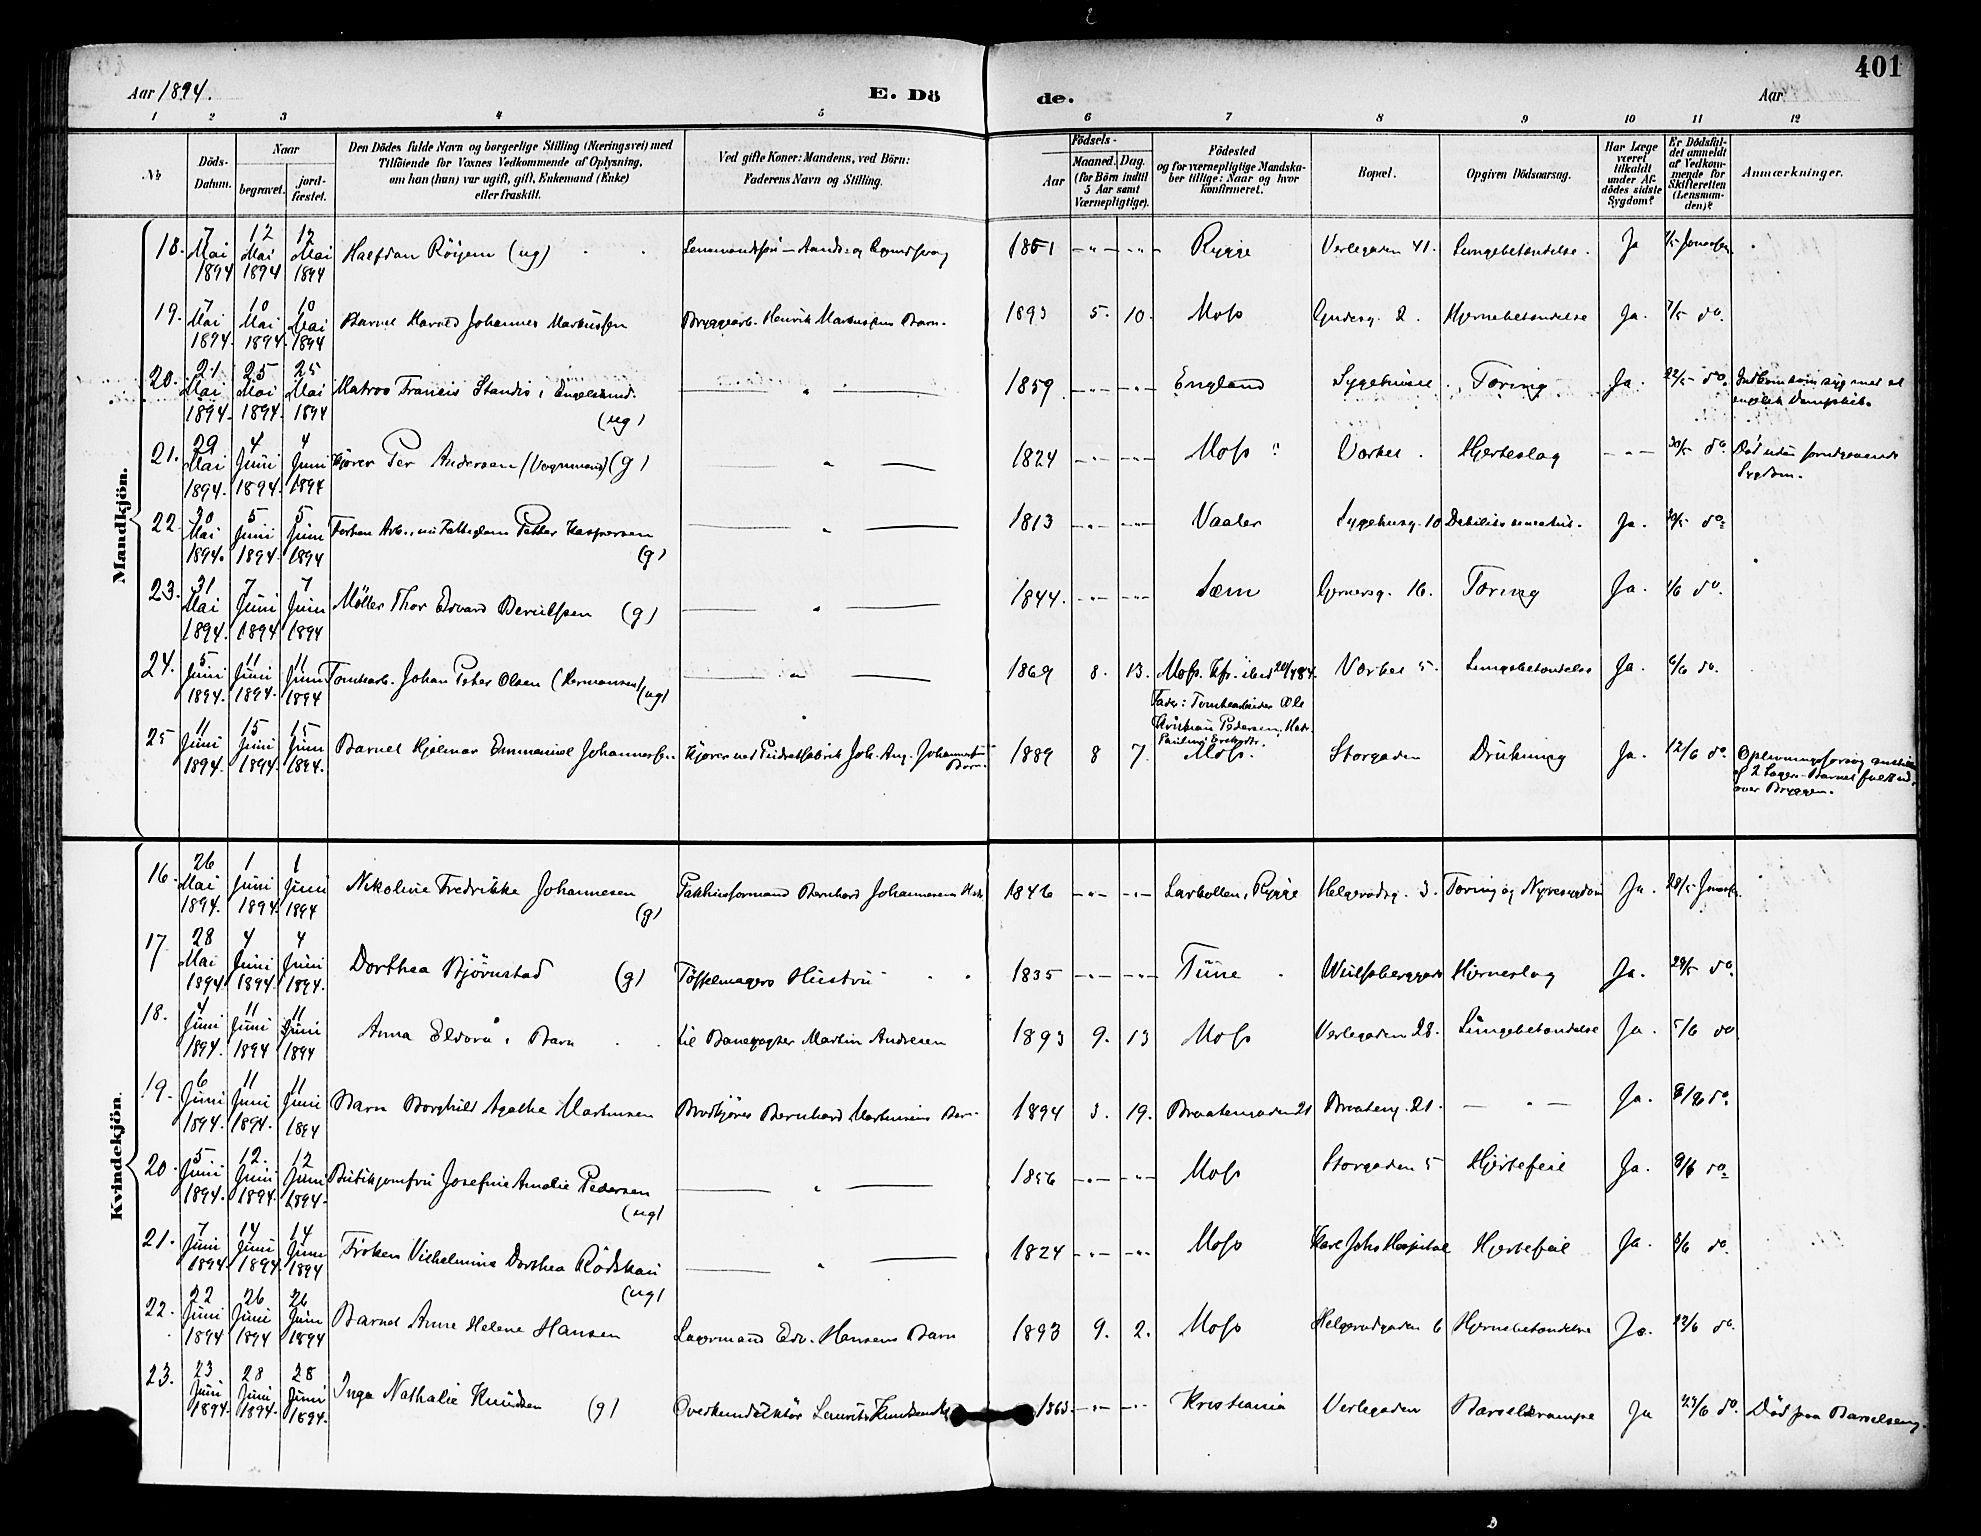 401
Aar 1894.
E. Dö
de.
Aar
1 2 3 4 5 6 7 8 9 10 11 12
№
Döds-
Datum.
Naar
begravet.
jord-
fæstet.
Den Dödes fulde Navn og borgerlige Stilling (Næringsvei) med
Tilföiende for Voxnes Vedkommende af Oplysning,
om han (hun) var ugift, gift, Enkemand (Enke)
eller fraskilt.
Ved gifte Koner: Mandens, ved Börn:
Faderens Navn og Stilling.
Födsels-
Aar
Maaned. Dag.
(for Börn indtil
5 Aar samt
Værnepligtige).
Födested
og for værnepligtige Mandska-
ber tillige: Naar og hvor
konfirmeret.
Bopæl.
Opgiven Dödsaarsag.
Har Læge
været
tilkaldt
under Af-
dödes sidste
Sygdom?
Er Dödsfal-
det anmeldt
af Vedkom-
mende for
Skifteretten
(Lensman-
den)?
Anmærkninger.
Mandkjön.
18. 7 Mai 1894 12 Mai 1894 12 Mai 1894 Halfdan Röijem (ug) 1851 Rygge Verlegaden 41. Lungebetændelse. Ja
19. 7 Mai 1894 10 Mai 1894 10 Mai 1894 Barnet Harald Johannes Markussen Bryggearb. Henrik Markussens Barn. 1893 5. 10. Moss 2. Hjernebetændelse Ja. 7/5 do.
20. 21 Mai 1894. 25 Mai 1894. 25 Mai 1894 Matros Francis Standis, England.
(ug) 1859 England Sygehuset. Tæring Ja. 22/5 do. syg med et
engelsk Dampskib.
21. 29 Mai 1894. 4 Juni 1894. 4 Juni 1894 Kjører Per Andersen (Vognmand) (g) 1824 Moss Værket. Hjerteslag 30/5 do. Död uden forudgaaende
Sygdom.
22. 30 Mai 1894. 5 Juni 1894. 5 Juni 1894 Petter Kaspersen
(g) 1813 Vaaler Sygehusg. 10 Debilitas senectus. Ja. 30/5 do.
23. 31 Mai 1894. 7 Juni 1894 7 Juni 1894 Møller Thor Edvard Berulfsen (g) 1844. Sæm 16. Tæring Ja. 1/6 do.
24. 5 Juni 1894. 11 Juni 1894. 11 Juni 1894 Tomtearb. Johan Peter Olsen (Hermansen) (ug) 1869 8. 13. Moss. Værket 5. Lungebetændelse Ja. 6/6 do.
Fader: Tomtearbeider Ole
Kristian Pedersen, Moder
25 11 Juni 1894. 15 Juni 1894. 15 Juni 1894. Barnet Hjalmar Emmanuel Johannessen. Kjører ved Joh. Aug. Johannessens
Barn. 1889 8 7. Moss. Storgaden Drukning Ja. 12/6 do. Oplivningsforsøg
af 2 Læger. Barnet faldt ud
over Bryggen.
Kvindekjön.
16. 26 Mai 1894. 1 Juni 1894. 1 Juni 1894 Nikoline Fredrikke Johannesen
(g) Pakhusformand Bernhard Johannesens 1846 Larkollen, Rygge 3. Tæring og Nyresygdom Ja. 28/5
17 28 Mai 1894 4 Juni 1894. 4 Juni 1894. Dorthea Bjørnstad (g) Töffelmagers Hustru 1835 Tune Hjerneslag Ja. 29/5 do.
18. 4 Juni 1894. 11 Juni 1894 11 Juni 1894 Anna Eldora, Barn til Banevogter Martin Andresen 1893 9. 13 Moss Verlegaden 28. Lungebetændelse Ja. 5/6 do
19. 6 Juni 1894. 11 Juni 1894. 11 Juni 1894 Barn Borghild Agathe Martinsen Brødkjører Bernhard Martinsens Barn. 1894 3. 19. Braatengaden 21 Braateng. 21. Ja. do.
20. 5 Juni 1894. 12. Juni 1894. 12 Juni 1894. Butikjomfru Josefine Amalie Pedersen
(ug) 1856 Moss Storgaden 5 Hjertefeil Ja. do.
21. 7 Juni 1894. 14 Juni 1894 14 Juni 1894 Frøken Vilhelmine Dorthea Rödskau
(ug) 1824 Moss Karl Johs Hospital Hjertefeil Ja. 8/6 do.
22. 22 Juni 1894 26 Juni 1894 26 Juni 1894 Barnet Anne Helene Hansen Lagermand Edv. Hansens Barn 1893 9. 2. Moss 6 Hjernebetændelse Ja. do.
23. 23 Juni 1894. 28 Juni 1894. 28 Juni 1894. Inga Nathalie Knudsen (g) Overkonduktör Laurits Knudsens 1863. Kristiania Verlegaden Barselkrampe Ja do. Död paa Barselseng.